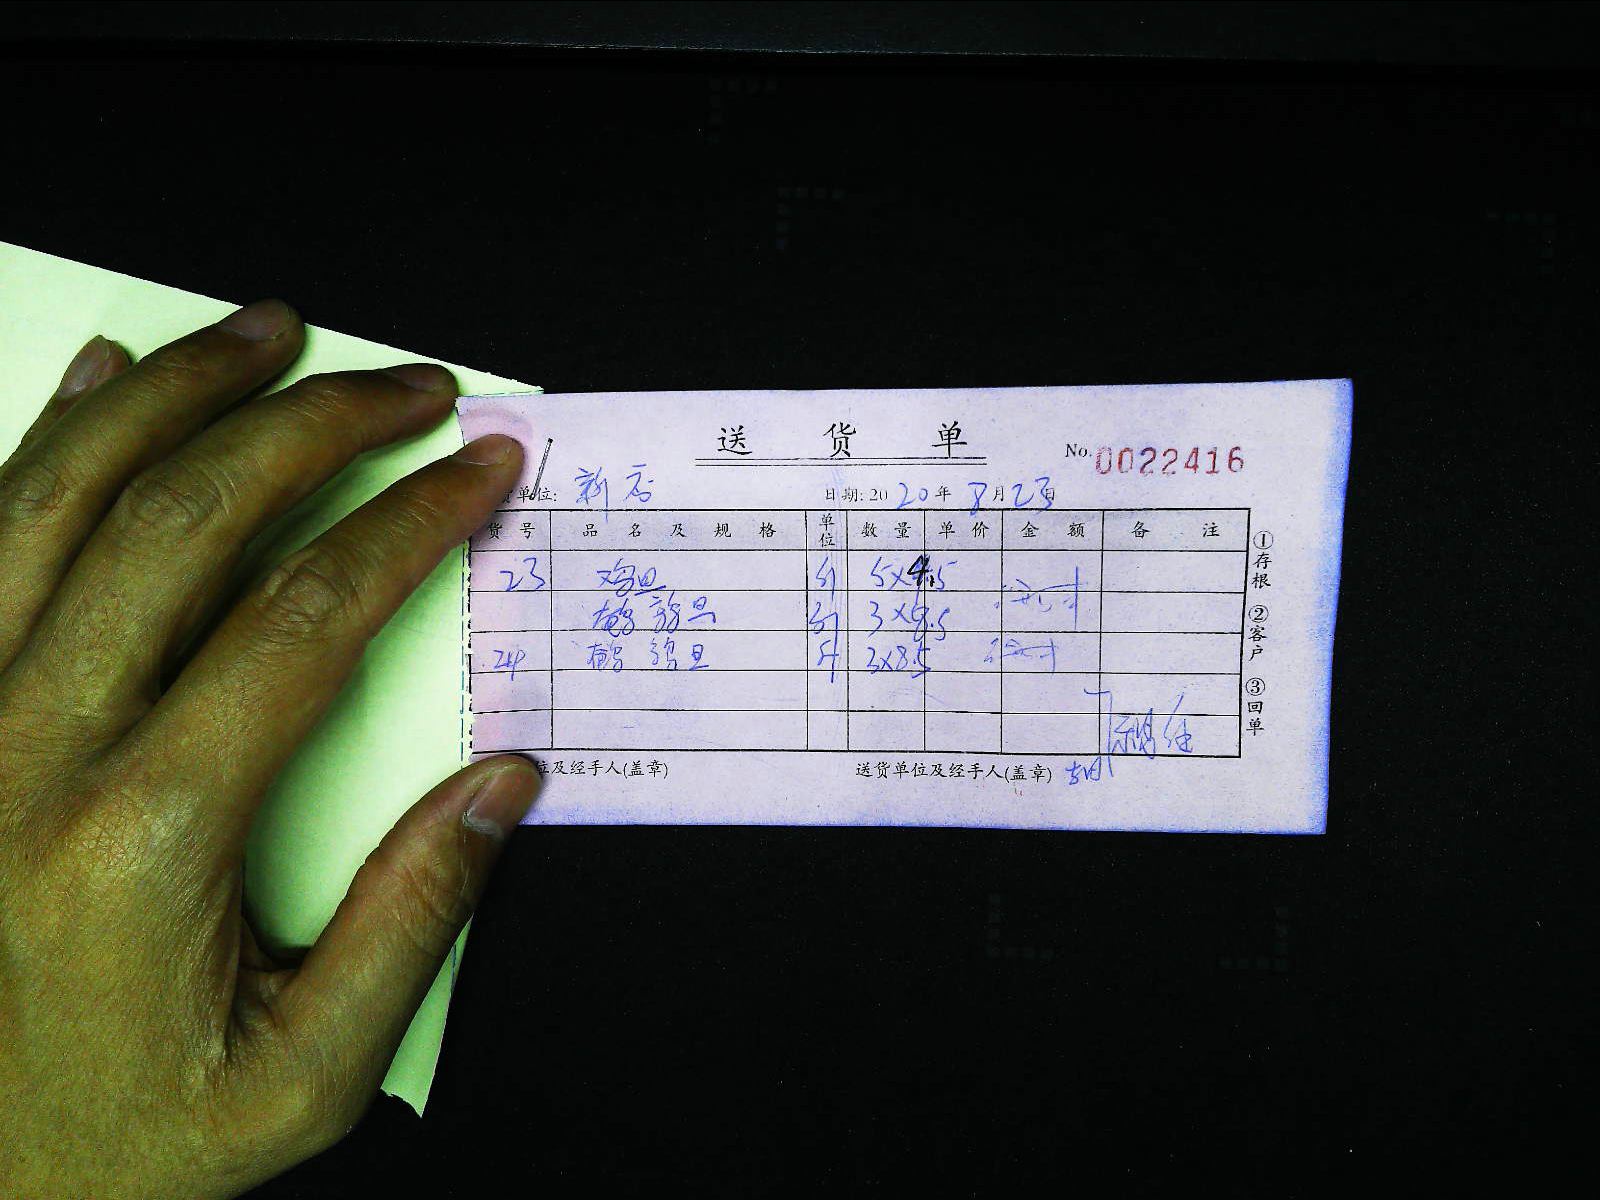 送 货 单
No. 0022416
货单位: 新店 日期: 2020年 8月23日
货号 品名及规格 单位 数量 单价 金额 备注
23 鸡旦 斤 5×4.5
鹌鹑旦 斤 3×8.5
24 鹌鹑旦 斤 3×8.5
位及经手人(盖章) 送货单位及经手人(盖章)
①存根
②客户
③回单